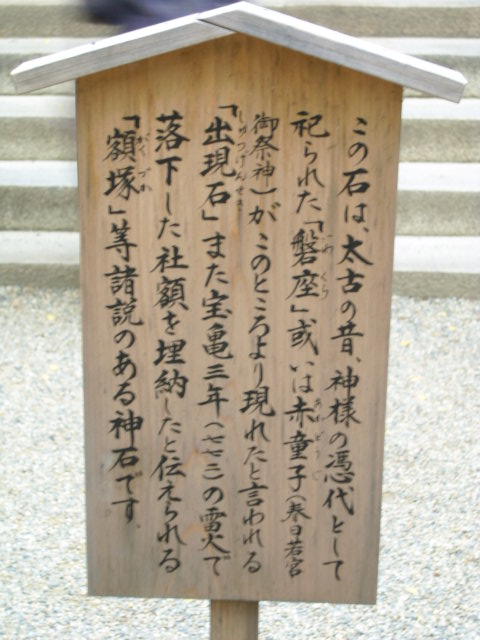 この石は、太古の昔、神様の憑代として
祀られた「磐座」或いは赤童子（春日若宮
御祭神）がこのところより現れたと言われる
「出現石」また宝亀三年（七七二）の雷火で
落下した社額を埋納したと伝えられる
「額塚」等諸説のある神石です